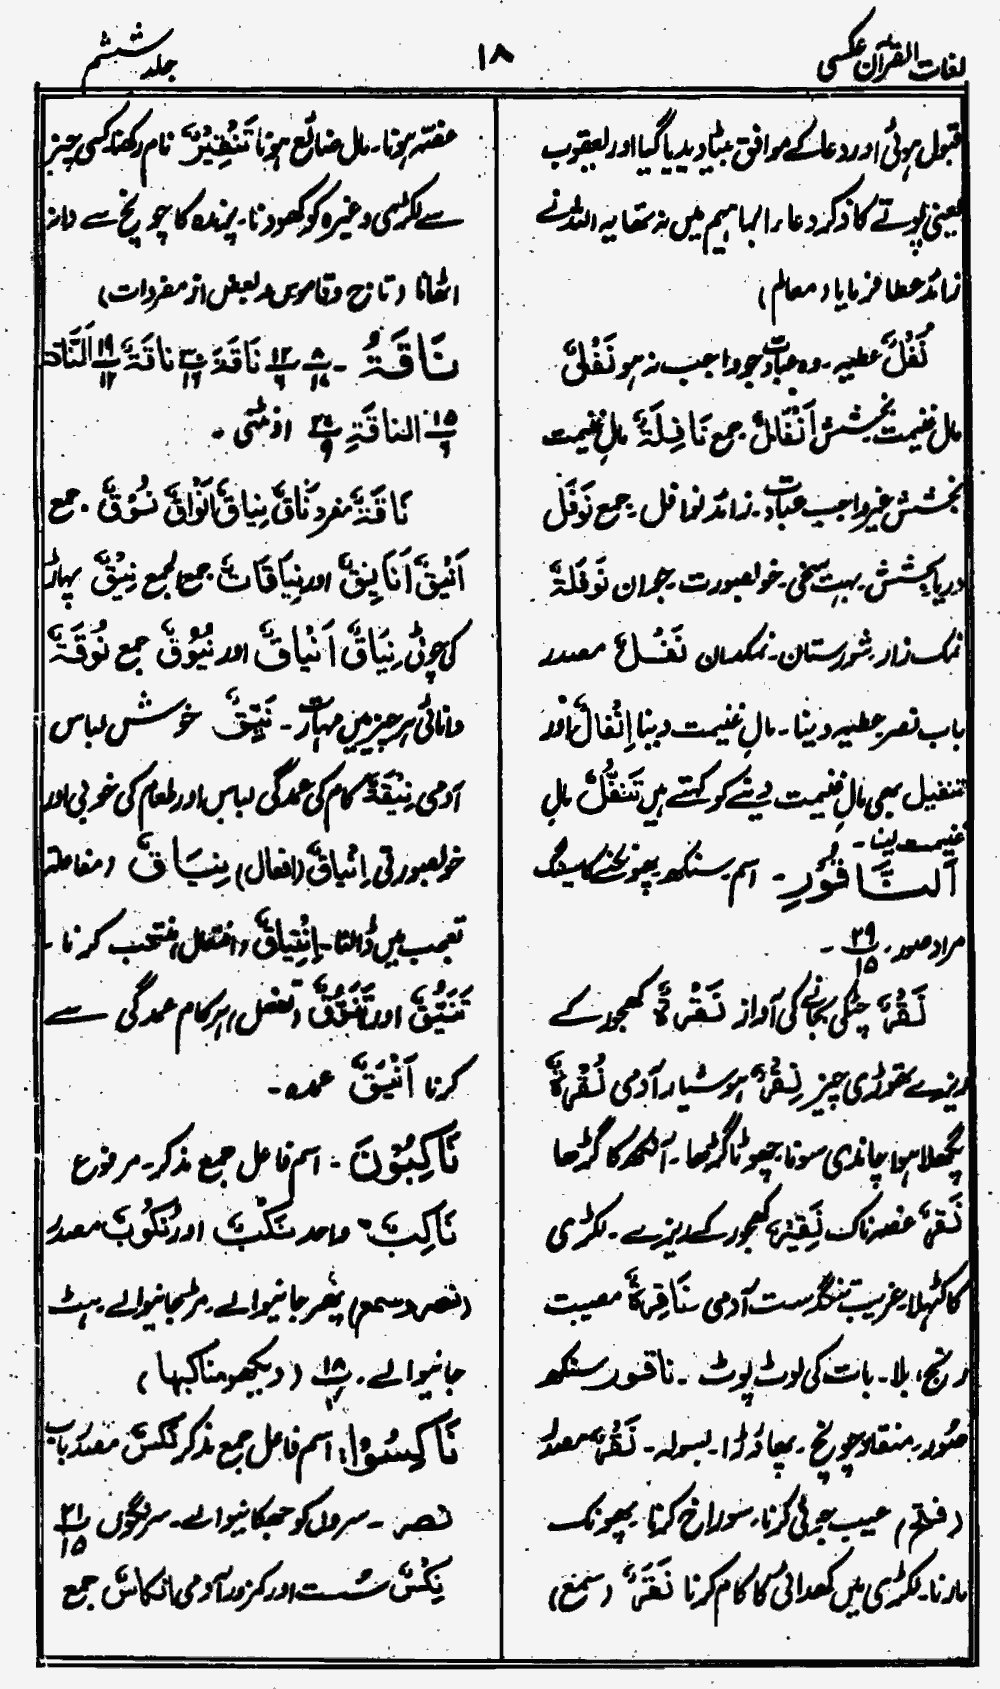 لغات القرآن عکسی
۱۸
جلد ششم
قبول ہوئی اور دعا کے موافق بیٹا دیدیا گیا اور یعقوب
یعنی پوتے کا ذکر دعاء ابراہیم میں نہ تھا یہ اللہ نے
زائد عطا فرمایا (معالم)
نَفْلٌ عطیہ۔ وہ عبادت جو واجب نہ ہو نَفَلٌ
مال غنیمت بخشش اَنْفَالٌ جمع نَافِلَةٌ مالِ غنیمت
بخشش غیر واجب عبادت۔ زائد نوافل۔ جمع نَوْفَلٌ
دریا بخشش۔ بہت سخی۔ خوبصورت جوان نَوْفَلَةٌ
نمک زار۔ شورستان۔ نمکدان نَفْلٌ مصدر
باب نصر عطیہ دینا۔ مالِ غنیمت دینا اِنْفَالٌ اور
تنفیل بھی مالِ غنیمت دینے کو کہتے ہیں تَنَفُّلٌ مالِ
غنیمت لینا۔
اَلنَّاقُوْرِ۔ اسم۔ سنکھ۔ پھونکنے کا سینگ
مراد صور۔ ۲۹/۱۵ ۔
نَقْرٌ چٹکی بجانے کی آواز نَقْرَةٌ کھجور کے
ریزے تھوڑی چیز نِقْرٌ ہوشیار آدمی نُقْرَةٌ
پگھلا ہوا چاندی سونا۔ چھوٹا گڑھا۔ آنکھ کا گڑھا
نَقِرٌ غصہ ناک نَقِيْرٌ کھجور کے ریزے۔ لکڑی
کا کٹہلا۔ غریب تنگدست آدمی نَاقِرَةٌ مصیبت
رنج، بلا۔ بات کی لوٹ پوٹ ۔ ناقور سنکھ
صور۔ منقار چونچ۔ پھاوڑا۔ بسولہ۔ نَقْرٌ مصدر
(فتح) عیب جوئی کرنا۔ سوراخ کرنا۔ پھونک
مارنا۔ لکڑی میں کھدائی کا کام کرنا نَقَرٌ (سمع)
غصہ ہونا۔ مال ضائع ہونا تَنْقِيْرٌ نام رکھنا کسی چیز
سے لکڑی وغیرہ کو کھودنا۔ پرندہ کا چونچ سے دانہ
اٹھانا (تاج و قاموس و بعض از مفردات)
نَاقَةُ ۔ ۸/۱۸ ۱۲/۶ نَاقَةَ ۳۰/۱۶ نَاقَةٌ ۱۹/۱۲ اَلنَّاقَةَ
۱۵/۶ الناقَةِ ۲۷/۹ اونٹنی ۔
نَاقَةٌ مفرد نَاقٌ نِيَاقٌ اَنْوَاقٌ نُوْقٌ ۔ جمع
اَنْيُقٌ اَنَايِنِقٌ اور نِيَاقَاتٌ جمع الجمع نِيْقٌ پہاڑ
کی چوٹی نِيَاقٌ اَنْيَاقٌ اور نُيُوْقٌ جمع نُوْقَةٌ
دانائی ہر چیز میں مہارت۔ نَيِّقٌ خوش لباس
آدمی نِيْقَةٌ کام کی عمدگی لباس اور طعام کی خوبی اور
خوبصورتی اِنْيَاقٌ (افعال) نِيَاقٌ (مفاعلة
تعجب میں ڈالنا۔ اِنْتِيَاقٌ (افتعال) منتخب کرنا ۔
تَنَيُّقٌ اور تَنَوُّقٌ (تفعل) ہر کام عمدگی سے
کرنا اَنْيَقٌ عمدہ۔
نَاكِبُوْنَ ۔ اسم فاعل جمع مذکر۔ مرفوع
نَاكِبٌ واحد نَكْبٌ اور نُكُوْبٌ مصدر
(نصر و سمع) پھر جانیوالے۔ مڑجانیوالے ہٹ
جانیوالے۔ ۱۸ (دیکھو مناکبہا)
نَاكِسُوْا اسم فاعل جمع مذکر نَكْسٌ مصدر باب
نصر ۔ سروں کو جھکانیوالے۔ سرنگوں ۲۱/۱۵
نِكْسٌ سست اور کمزور آدمی انکاسٌ جمع